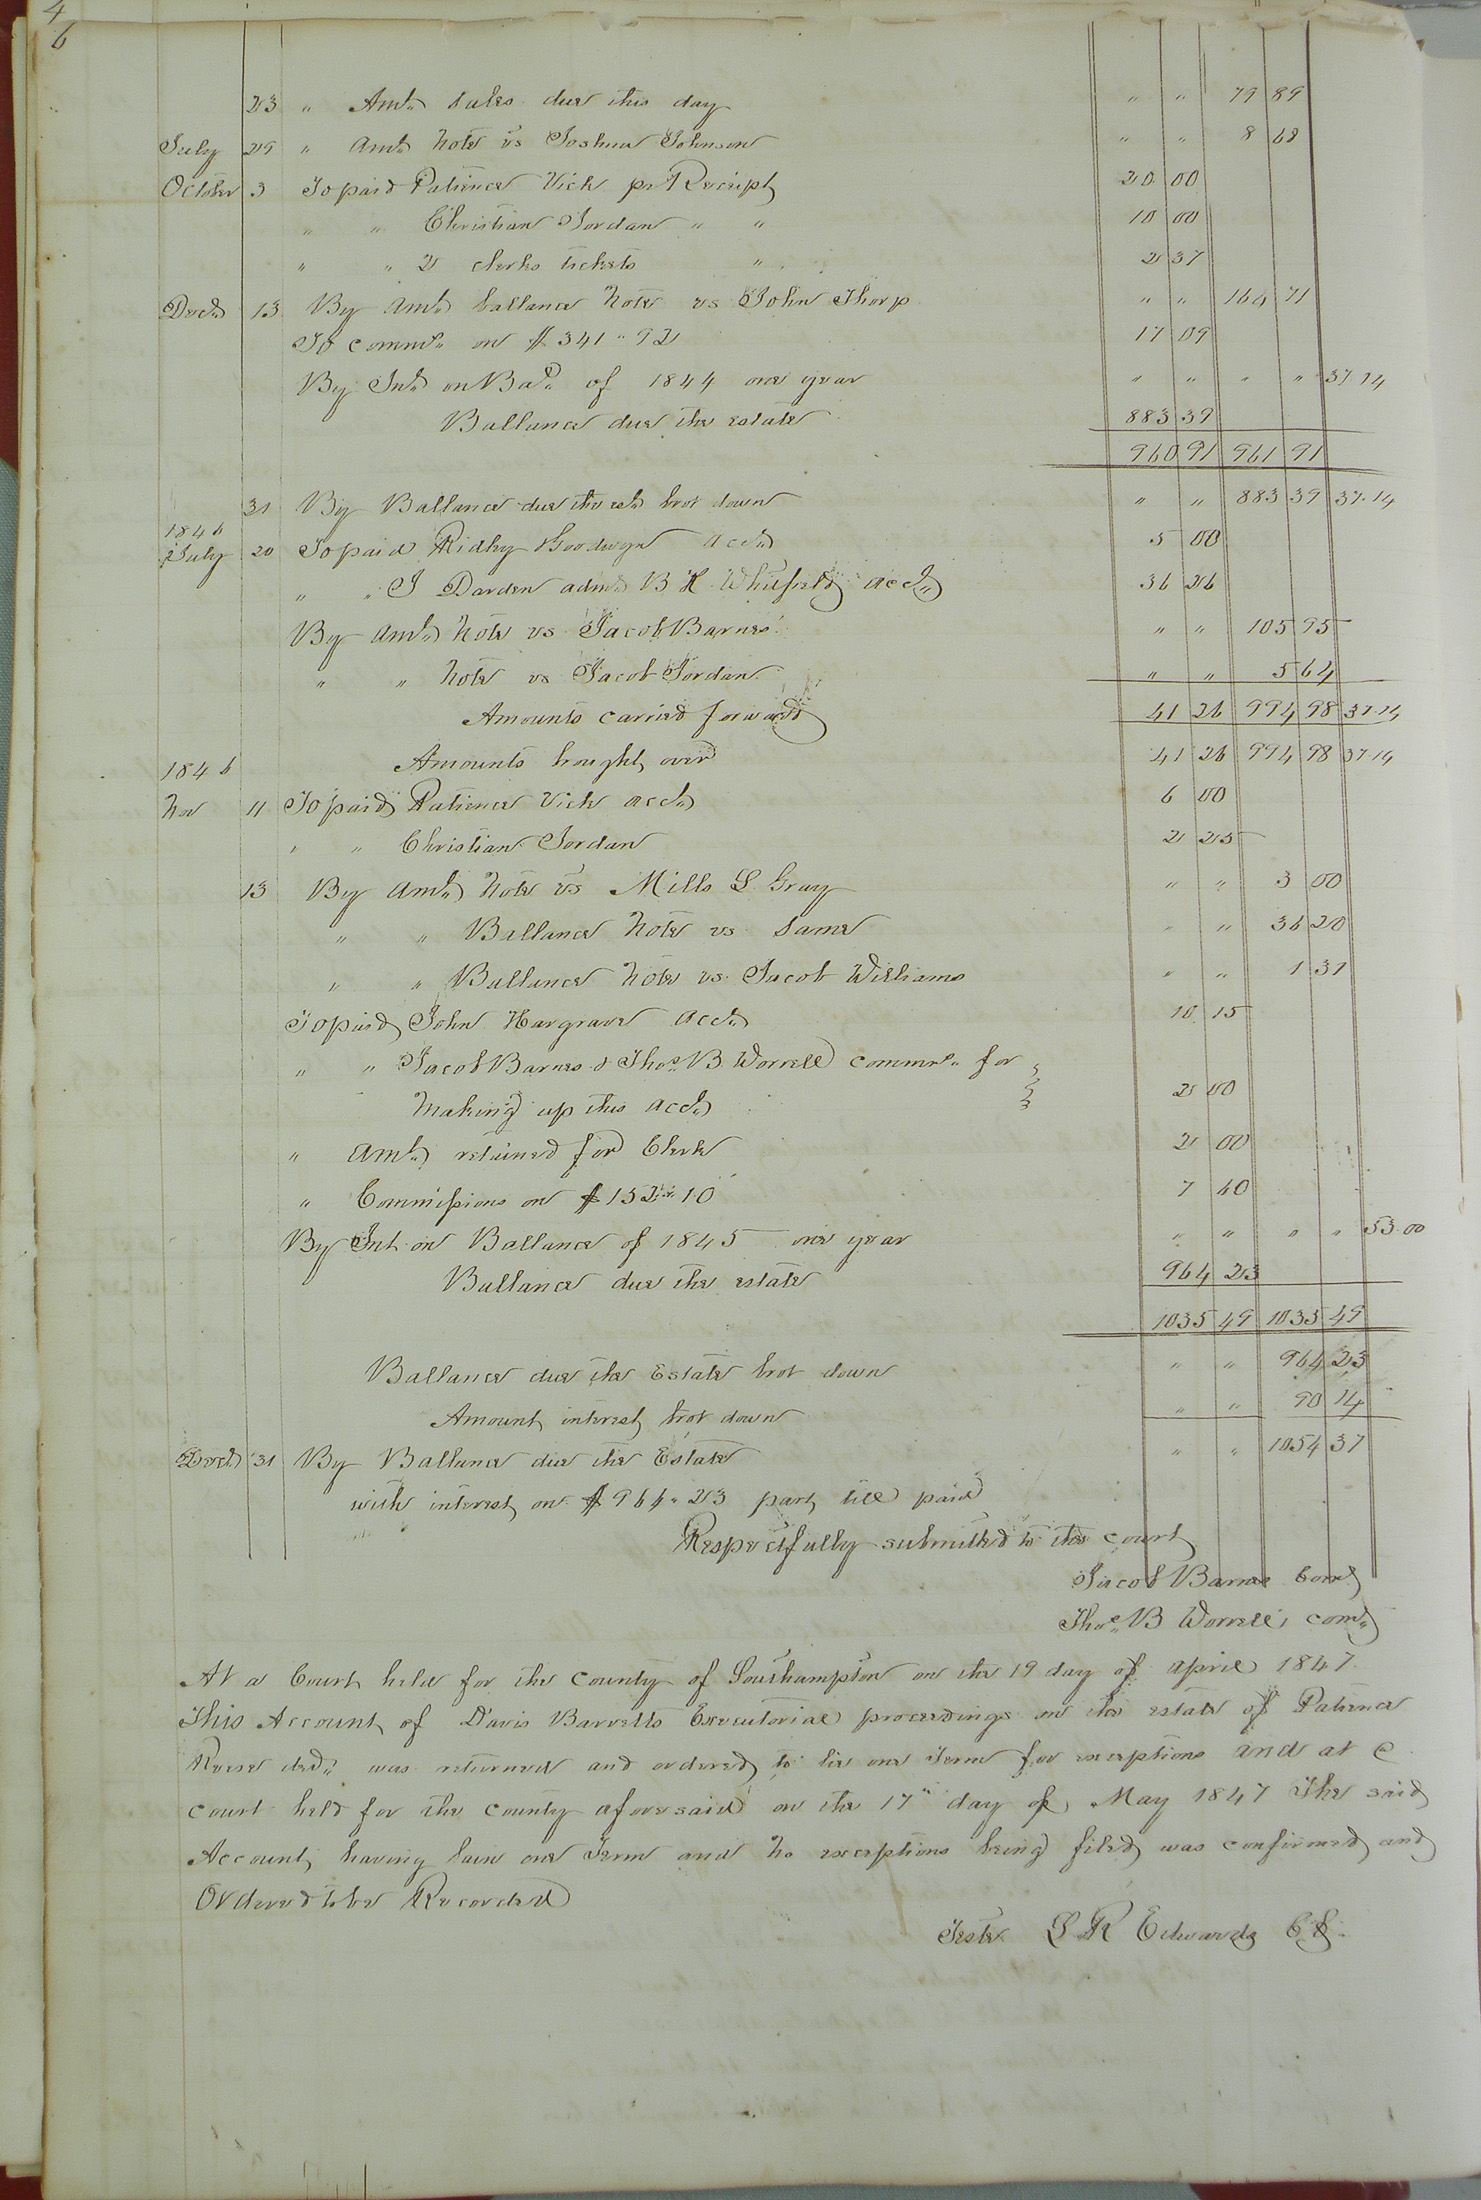 4
6
23 " Amt. Sales due this day " " 79 89
July 29 " Amt. Note vs Joshua Johnson " " 8 68
October 3 To paid Patience Vick pr Receipt 20 00
" " Christian Jordan " " 10 00
" " 2 clerks tickets " 2 37
Decr. 13 By Amt. ballance Note vs John Thorp " " 164 71
To comms. on $341"92 17 09
By Int. on Bale. of 1844 one year " " " " 37.14
Ballance due the estate 883 39
960 91 961 91
31 By Ballance due the est. brot down " " 883 39 37.14
1846
July 20 To paid Ridley Goodwyn acct. 5 00
" " J Darden adm. B H Whitfield acct. 36 26
By Amt. Note vs Jacob Barnes " " 105 95
" " Note vs Jacob Jordan " " 5 64
Amounts carried forward 41 26 994 98 37.14
1846 Amounts brought over 41 26 994 98 37.14
Nov 11 To paid Patience Vick acct. 6 00
" " Christian Jordan 2 25
13 By Amt. Note vs Mills L Gray " " 3 00
" " Ballance Note vs Same " " 36 20
" " Ballance Note vs Jacob Williams " " 1 31
To paid John Hargrave acct. 10 15
" " Jacob Barnes & Thos. B. Worrell commrs. for
making up this acct. 2 00
" Amt. retained for Clerk 2 00
" Commissions on $152"10 7 60
By Int. on Ballance of 1845 one year " " " " 53.00
Ballance due the estate 964 23
1035 49 1035 49
Ballance due the Estate brot down " " 964 23
Amount interest brot down " " 90 14
Decr. 31 By Ballance due the Estate " " 1054 37
with interest on $964"23 part till paid
Respectfully submitted to the court
Jacob Barnes Comr.
Thos. B Worrell, comr.
At a Court held for the County of Southampton on the 19 day of April 1847.
This Account of Davis Barretts Executorial proceedings on the estate of Patience
Reese decd. was returned and ordered to lie one Term for exceptions and at a
court held for the county aforesaid on the 17th day of May 1847 The said
Account having lain one Term and no exceptions being filed was confirmed and
Ordered to be Recorded
Teste L R Edwards C.C.